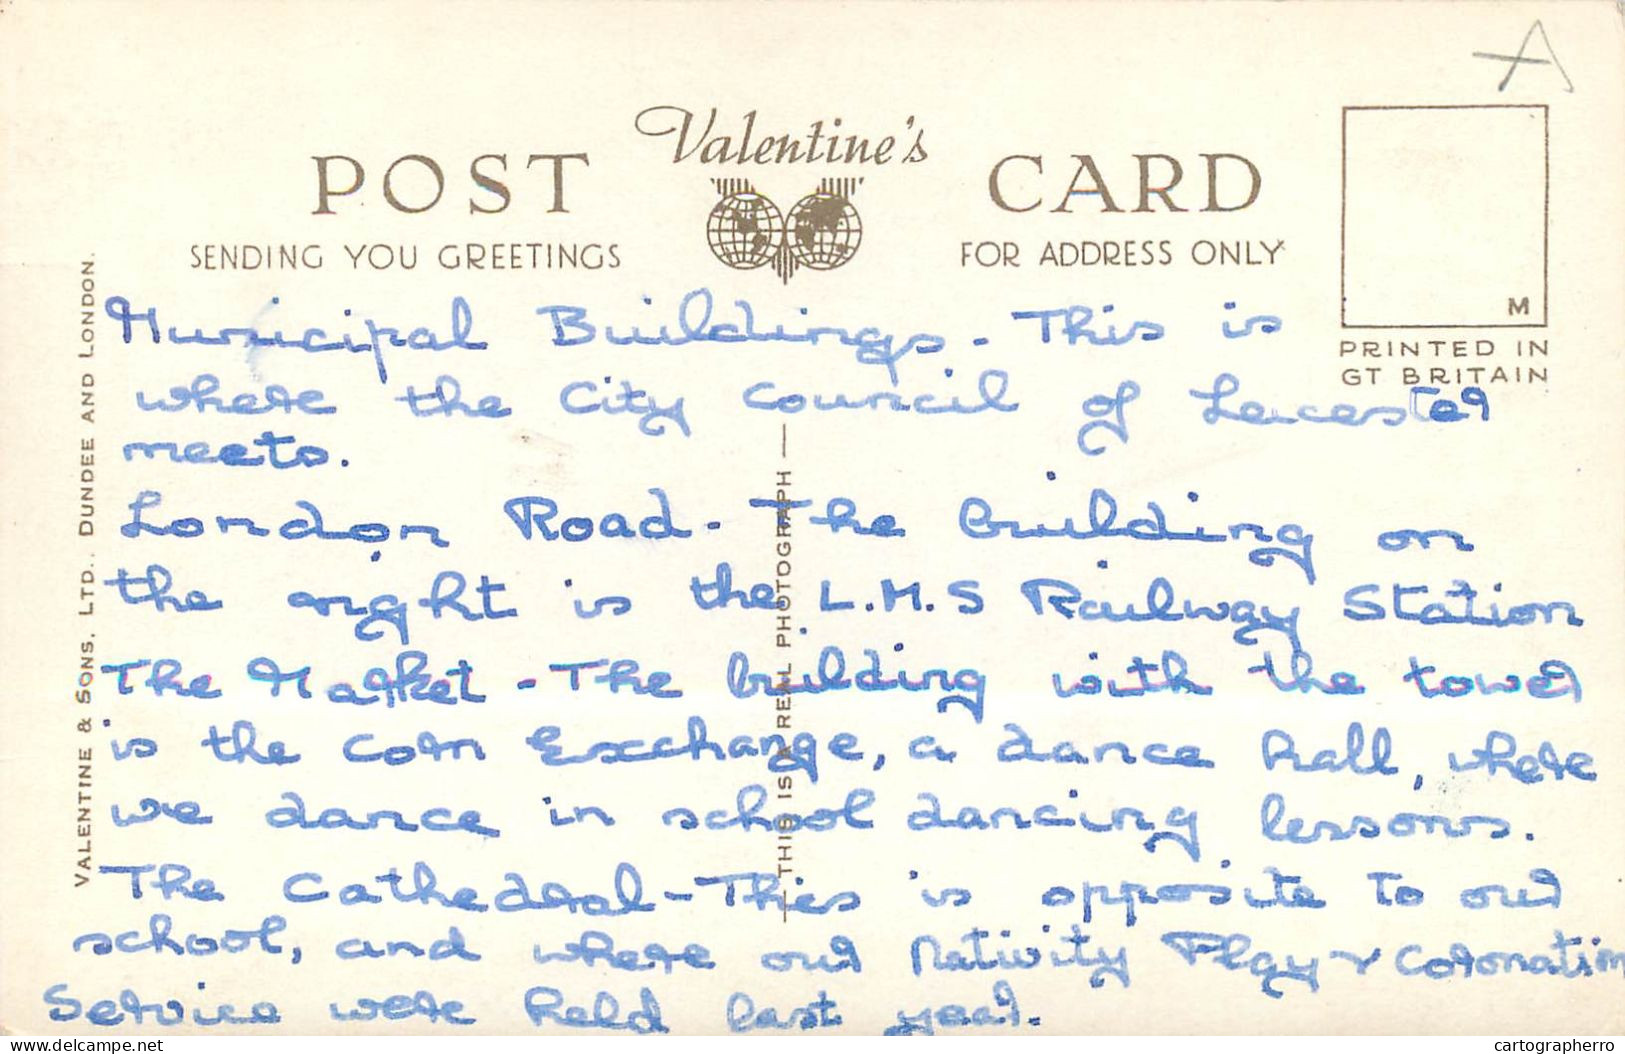 A
Valentine's
POST CARD
SENDING YOU GREETINGS
FOR ADDRESS ONLY
M
PRINTED IN
GT BRITAIN
VALENTINE & SONS. LTD. DUNDEE AND LONDON.
THIS IS A REAL PHOTOGRAPH
Municipal Buildings - This is
where the City Council of Leicester
meets.
London Road - The building on
the right is the L.M.S Railway Station
The Market - The building with the tower
is the Corn Exchange, a dance hall, where
we dance in school dancing lessons.
The Cathedral - This is opposite to our
school, and where our Nativity Play & Coronation
Service were held last year.
Delcampe.com
cartographerro